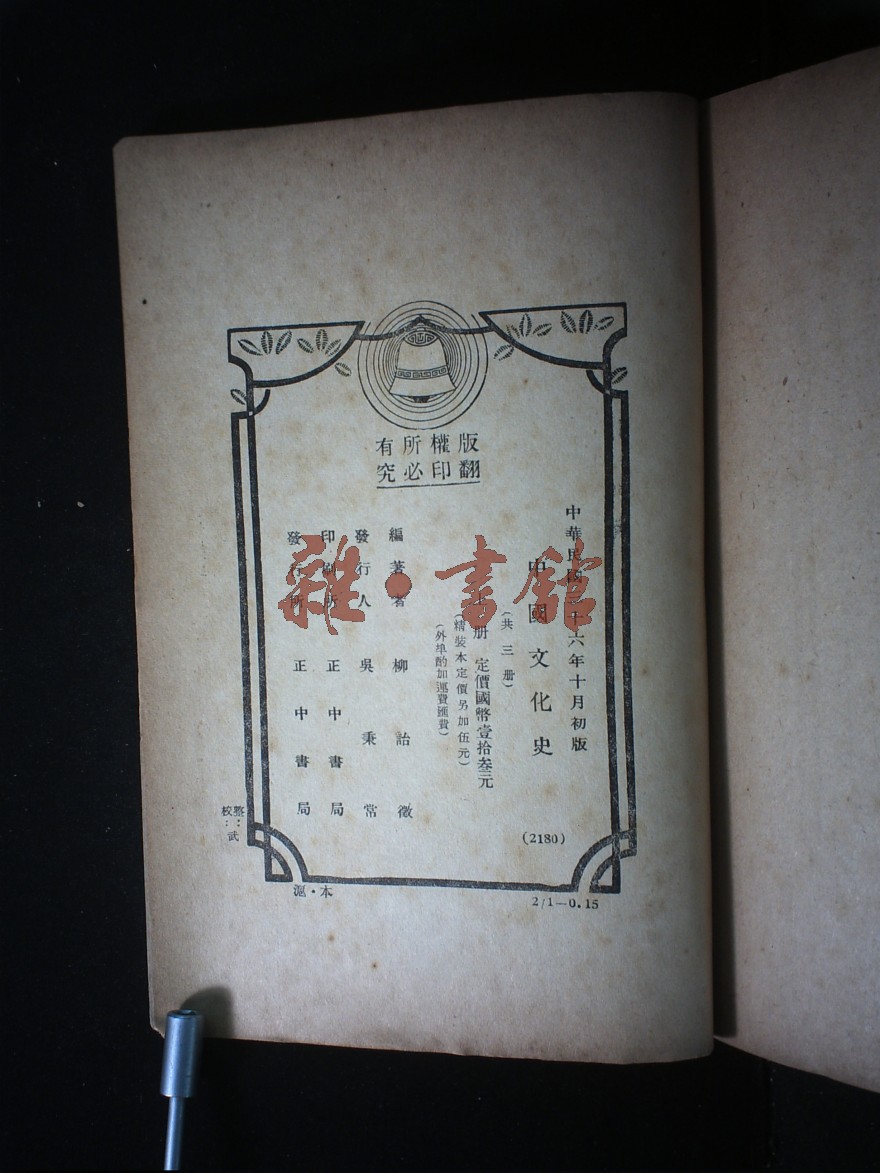 版權所有
翻印必究
中華民國十六年十月初版
中國文化史
(共三册)
册 定價國幣壹拾叁元
(精裝本定價另加伍元)
(外埠酌加運費匯費)
編著者 柳詒徵
發行人 吳秉常
印刷所 正中書局
發行所 正中書局
(2180)
校：武
本・滬
2/1—0.15
雜・書館